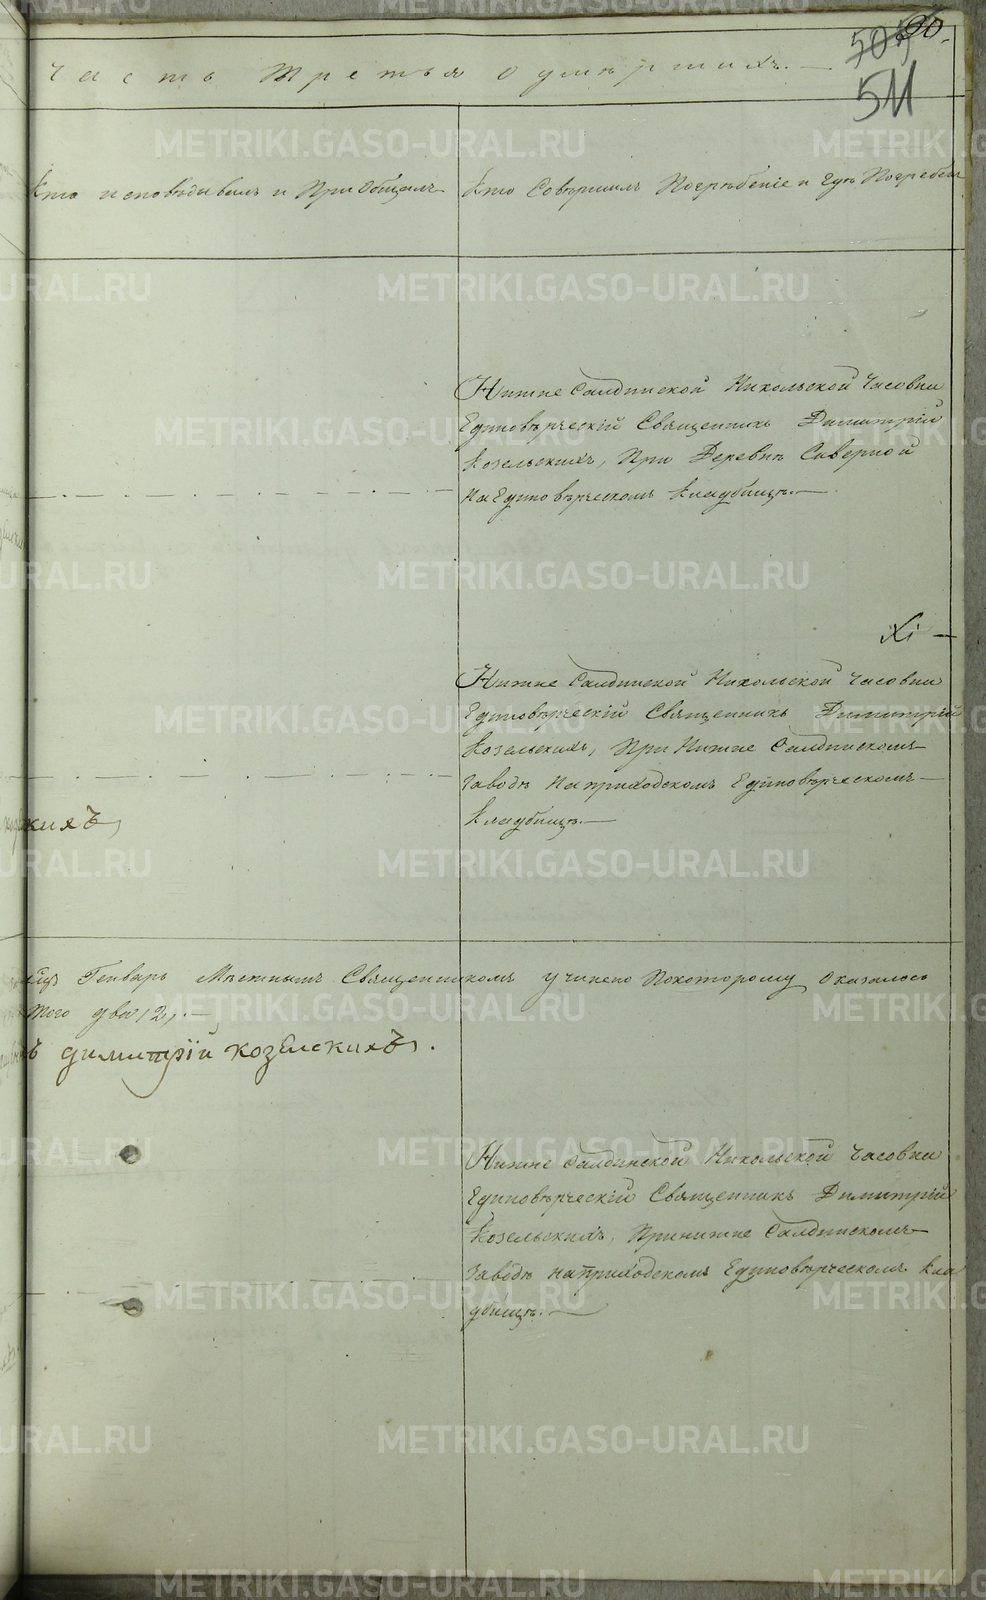 90.
505
511
Часть третья о умершихъ.
Кто исповѣдывалъ и Приобщалъ
Кто Совершилъ Погребеніе и гдѣ Погребен
Нижне Салдинской Никольской Часовни
Единовѣрческій Священникъ Димитрій
Козельскихъ, При Деревнѣ Северной
На Единовѣрческомъ Кладбищѣ.
Нижне Салдинской Никольской Часовни
Единовѣрческій Священникъ Димитрій
Козельскихъ, При Нижне Салдинскомъ
Заводѣ На приходскомъ Единовѣрческомъ
Кладбищѣ.
Генварь Мѣстнымъ Священникомъ учинено Покоторому оказалось
того два, 2,.
димитрій козелскихъ.
Нижне Салдинской Никольской Часовни
Единовѣрческій Священникъ Димитрій
Козельскихъ, При нижне Салдинскомъ
Заводѣ на приходскомъ Единовѣрческомъ Кла
дбищѣ.
METRIKI.GASO-URAL.RU